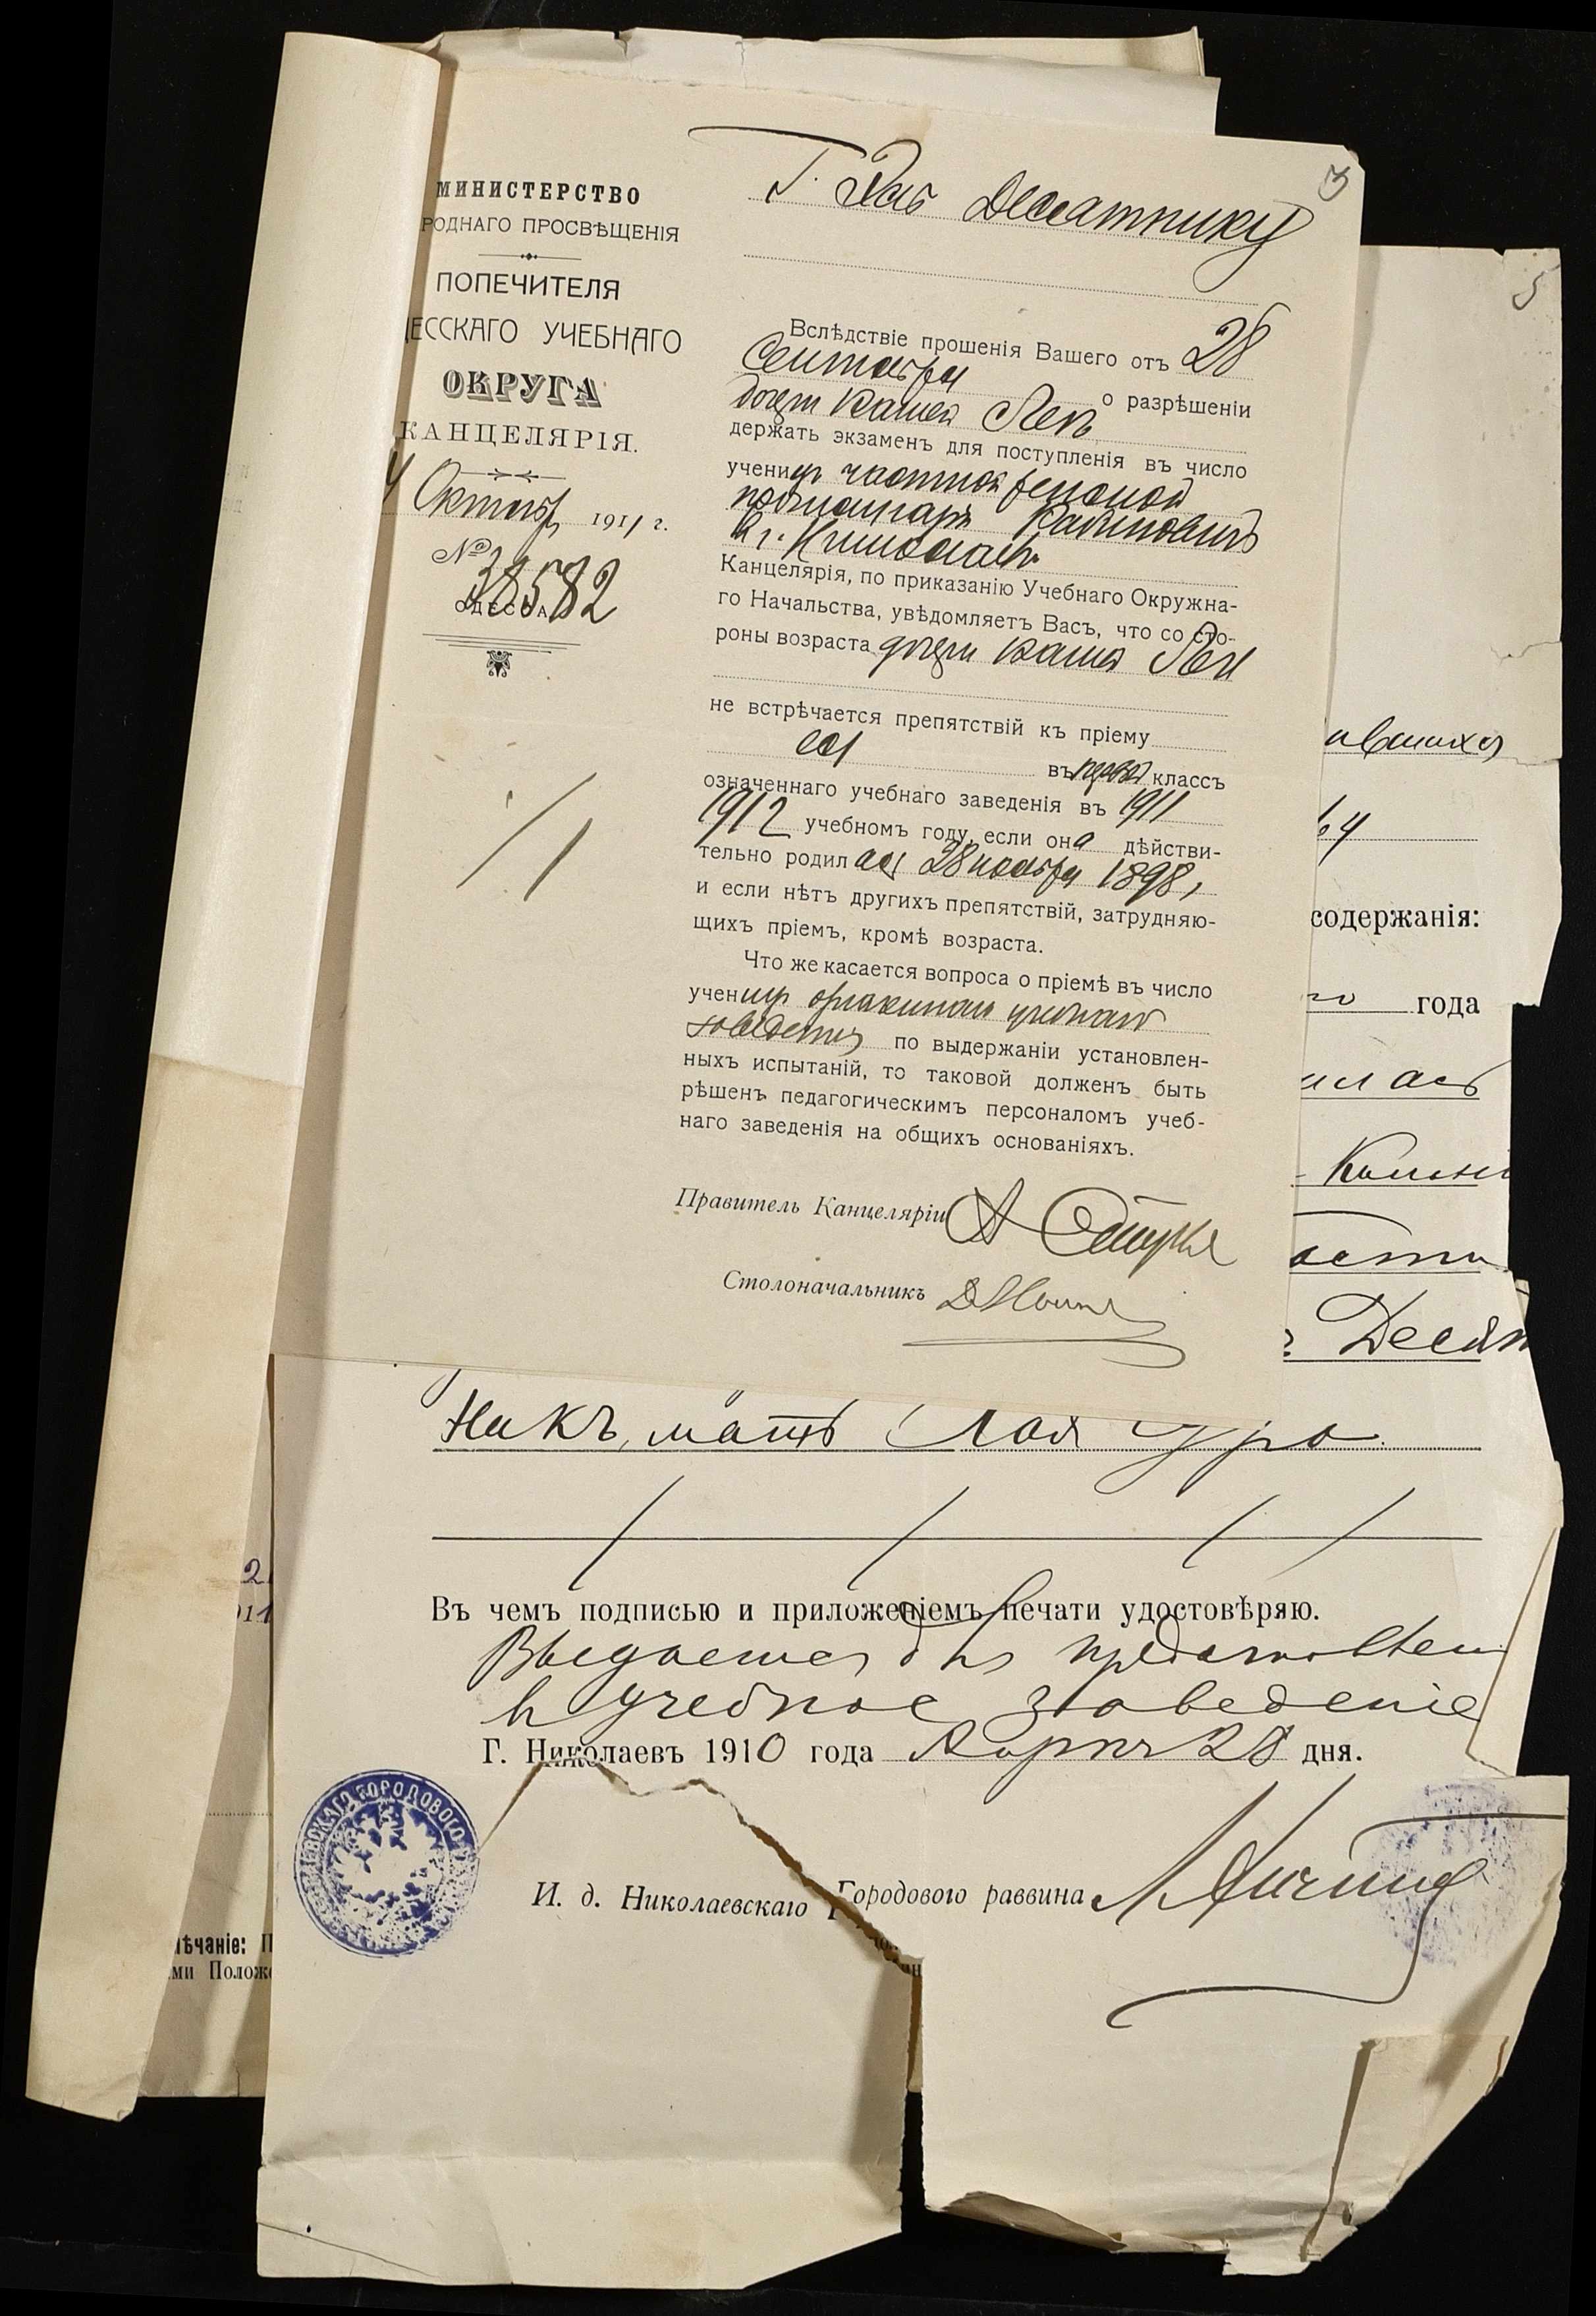 МИНИСТЕРСТВО
РОДНАГО ПРОСВѢЩЕНІЯ
ПОПЕЧИТЕЛЯ
ЕССКАГО УЧЕБНАГО
ОКРУГА
КАНЦЕЛЯРІЯ.
4 Октября 1911 г.
№ 38582
ОДЕССА
3
Г. Десятнику
Вслѣдствіе прошенія Вашего отъ 28
Сентября о разрѣшеніи
дочери Вашей Леѣ
держать экзаменъ для поступленія въ число
ученицъ частной женской
прогимназіи Рабиновичъ
въ г. Николаевѣ
Канцелярія, по приказанію Учебнаго Окружна-
го Начальства, увѣдомляетъ Васъ, что со сто-
роны возраста дочери Вашей Леи
не встрѣчается препятствій къ пріему
ея въ первый классъ
означеннаго учебнаго заведенія въ 1911
1912 учебномъ году, если она дѣйстви-
тельно родилась 28 ноября 1898,
и если нѣтъ другихъ препятствій, затрудняю-
щихъ пріемъ, кромѣ возраста.
Что же касается вопроса о пріемѣ въ число
ученицъ означеннаго учебнаго
заведенія по выдержаніи установлен-
ныхъ испытаній, то таковой долженъ быть
рѣшенъ педагогическимъ персоналомъ учеб-
наго заведенія на общихъ основаніяхъ.
Правитель Канцеляріи
Столоначальникъ
5
ившихся
содержанія:
года
илась
Десят
никъ, мать Лея
Въ чемъ подписью и приложеніемъ печати удостовѣряю.
Выдается для представленія
въ учебное заведеніе
Г. Николаевъ 1910 года 28 дня.
И. д. Николаевскаго Городового раввина
ЕВСКАГО ГОРОДОВОГО
ѣчаніе: П
ми Полож